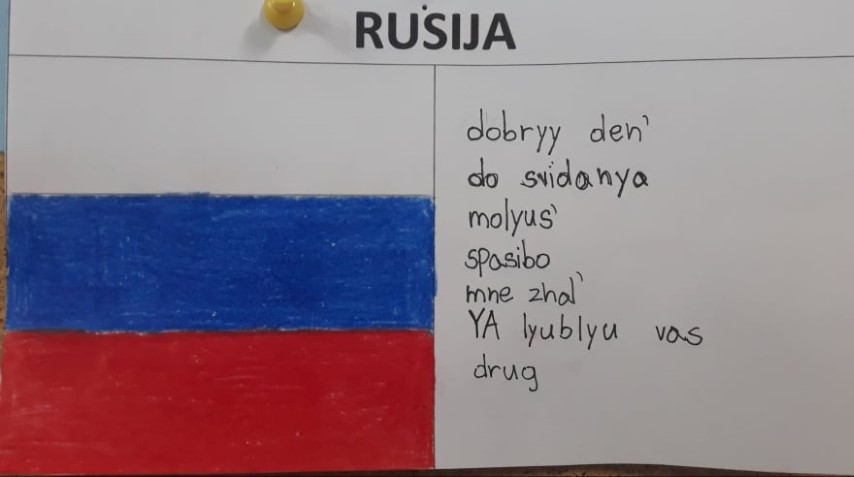 RUSIJA
dobryy den'
do svidanya
molyus'
spasibo
mne zhal'
YA lyublyu vas
drug